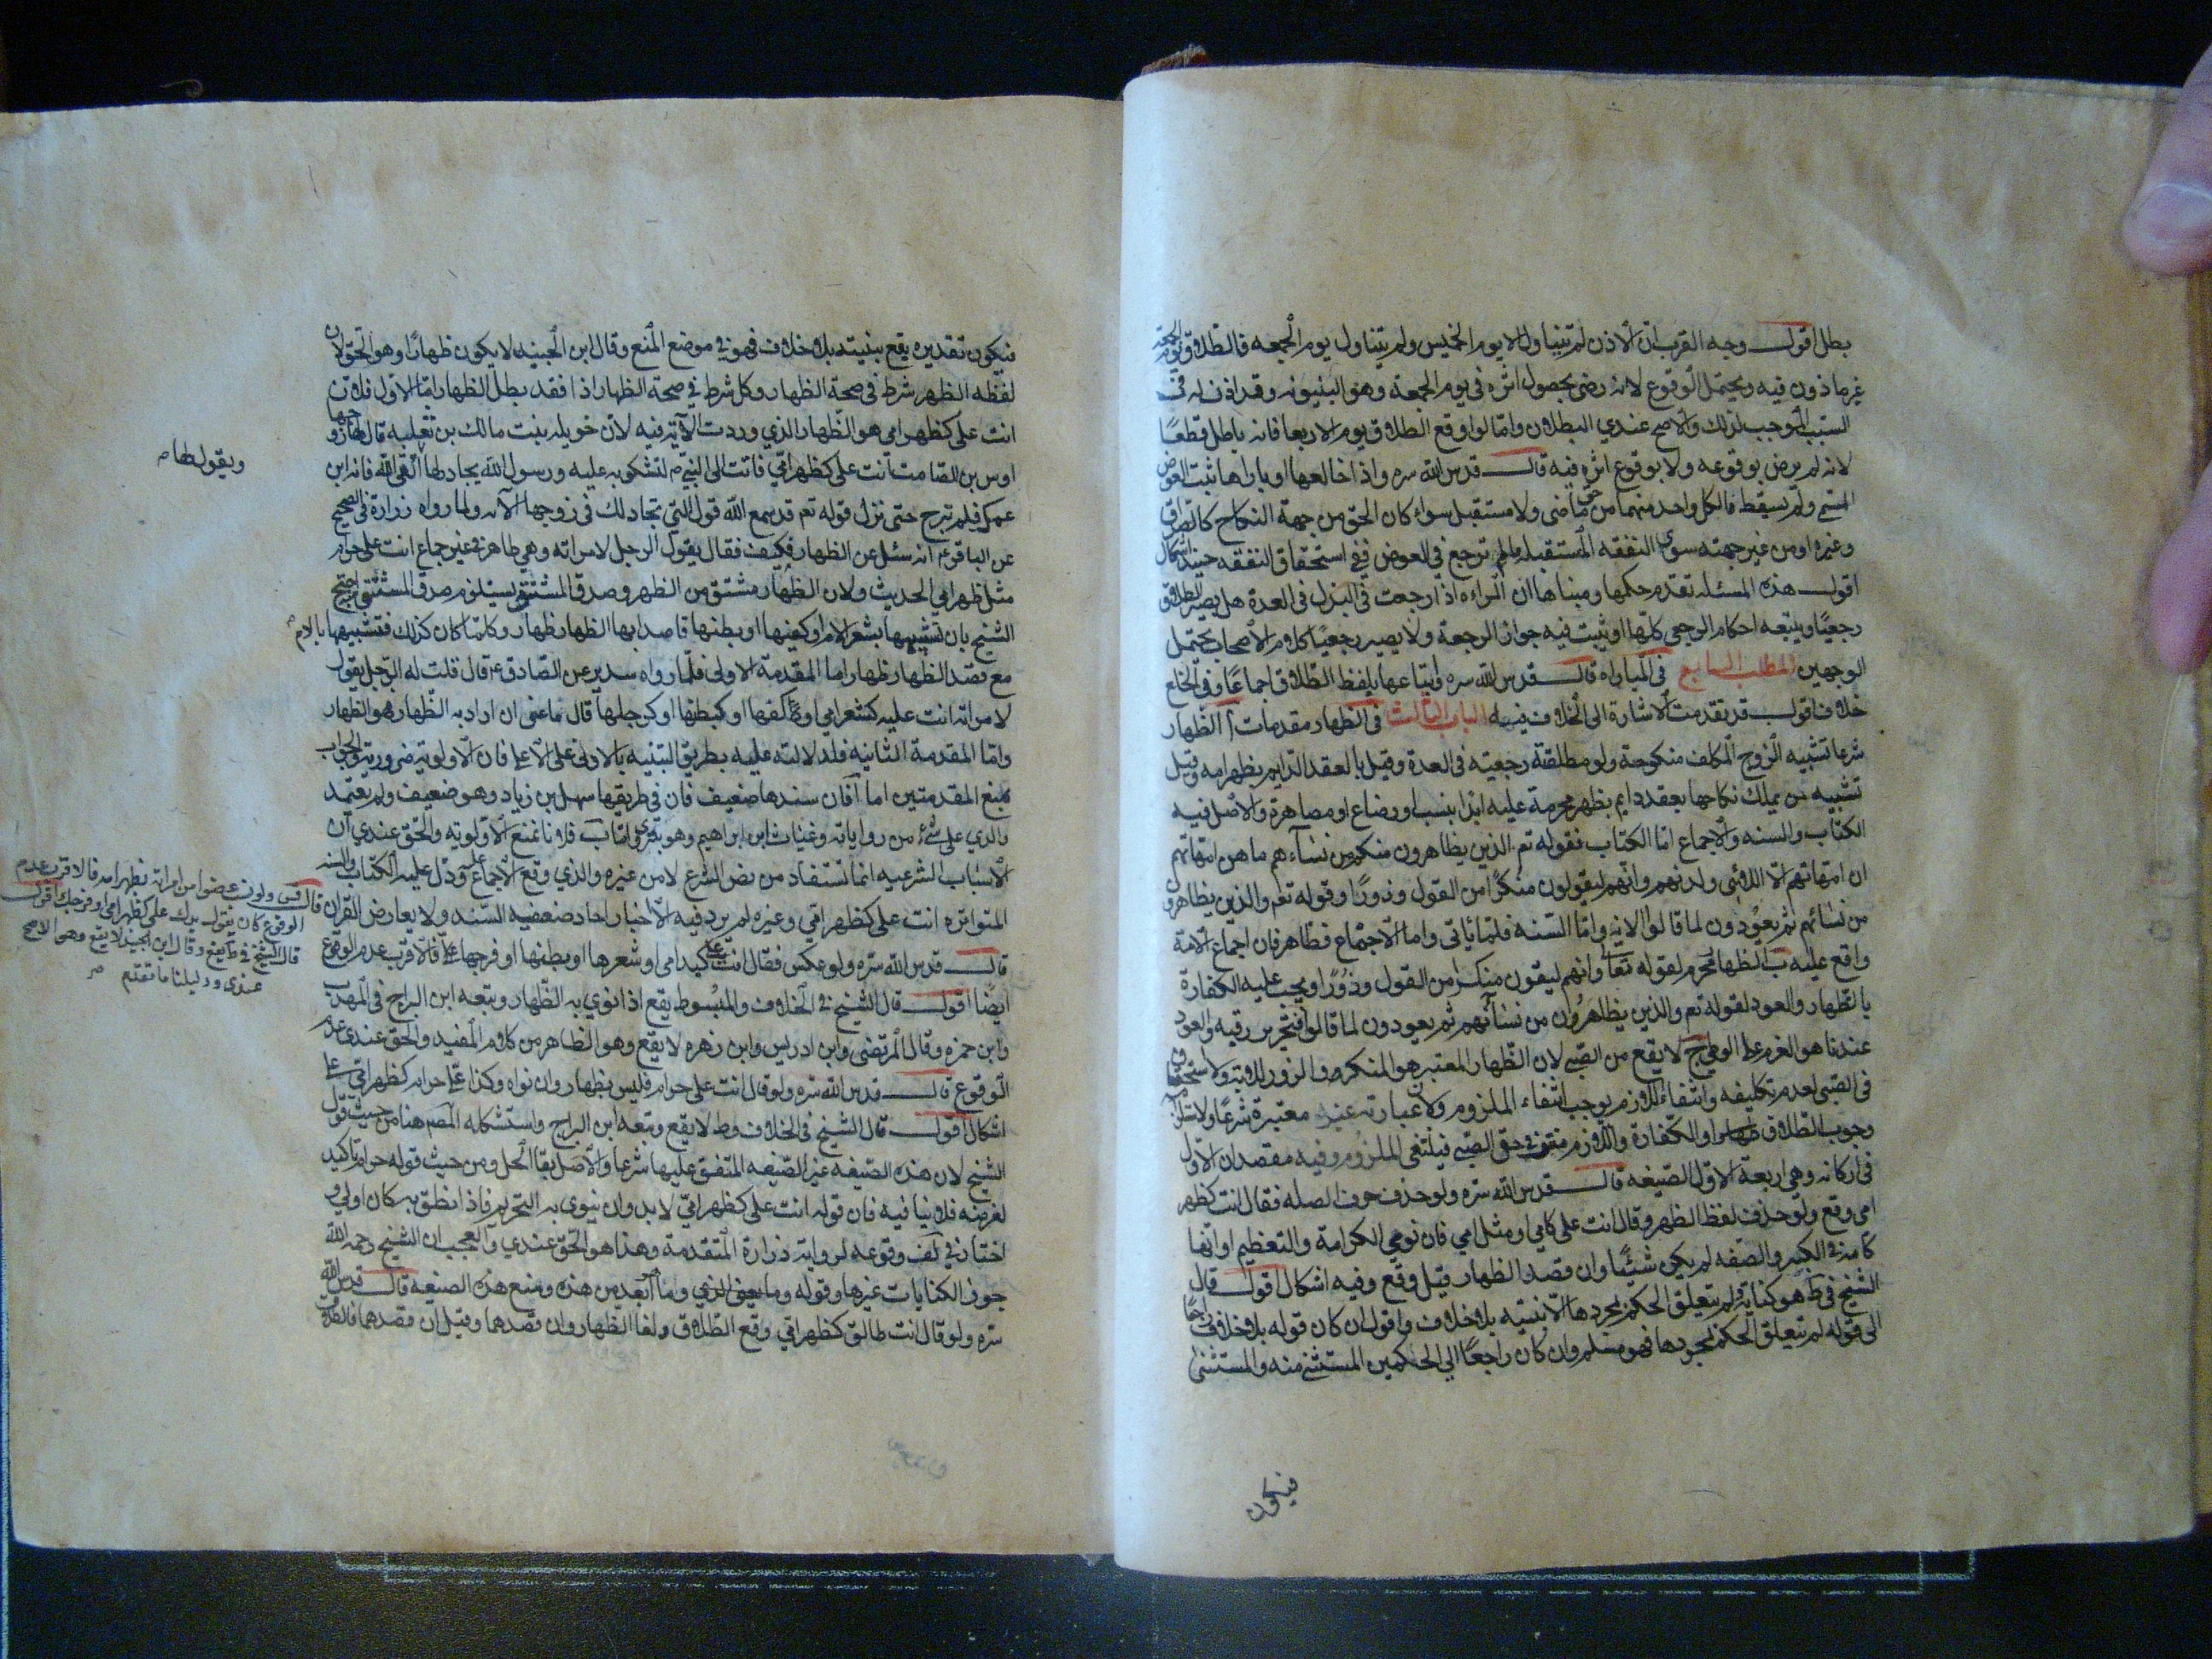 بطل اقول وجه القرب ان الاذن لم يتناول الا يوم الخميس ولم يتناول يوم الجمعه فالطلاق يوم الجمعة
غير ماذون فيه ويحتمل الوقوع لانه رضى بحصول اثره في يوم الجمعة وهو البينونه وقد اذن له في
السبب الموجب لذلك والاصح عندي البطلان وامّا لو اوقع الطلاق يوم الاربعا فانه باطل قطعًا
لانه لم يرض بوقوعه ولا بوقوع اثره فيه قال قدس الله سره واذا خالعها او باراها ثبت العوض
المسمى ولم يسقط ما لكل واحد منهما من حق ماضى ولا مستقبل سواء كان الحق من جهة النكاح كالصداق
وغيره او من غير جهته سوى النفقه المستقبله ما لم ترجع في العوض ففي استحقاق النفقه حينئذ اشكال
اقول هذه المسئله تقدم حكمها ومبناها ان المراءه اذا رجعت في البذل في العدة هل يصير الطلاق
رجعيًا ويتبعه احكام الرجعي كلها او يثبت فيه جواز الرجعة ولا يصير رجعيًا كلام الاصحاب يحتمل
الوجهين المطلب السابع في المباراه قال قدس الله سره واتباعها بلفظ الطلاق اجماعًا وفي الخلع
خلاف اقول قد تقدمت الاشارة الى الخلاف فيه الباب الثالث في الظهار مقدمات أ الظهار
شرعا تشبيه الزوج المكلف منكوحة ولو مطلقة رجعيّة في العدة وقيل بالعقد الدايم بظهر امه وقيل
تشبيه من يملك نكاحها بعقد دايم بظهر محرمة عليه ابدًا بنسب او رضاع او مصاهرة والاصل فيه
الكتاب والسنه والاجماع امّا الكتاب فقوله تع الذين يظاهرون منكم من نساءهم ما هن امهاتهم
ان امهاتهم الّا اللائي ولدنهم وانهم ليقولون منكرًا من القول وزورًا وقوله تع والذين يظاهرون
من نسائهم ثم يعودون لما قالوا الايه وامّا السّنه فلما يأتي واما الاجماع فظاهر فان اجماع الامة
واقع عليه ب الظهار محرم لقوله تعا وانهم ليقولون منكرا من القول وزورًا ويجب عليه الكفارة
بالظهار والعود لقوله تع والذين يظاهرون من نسائهم ثم يعودون لما قالوا فتحرير رقبه والعود
عندنا هو العزم على الوطي ج لا يقع من الصبي لان الظهار المعتبر هو المنكر والزور
في الصبى لعدم تكليفه وانتفاء اللازم يوجب انتفاء الملزوم ولان عبارته غير معتبرة شرعًا
وجوب الطلاق او الكفارة واللازم منتف في حق الصبي فينتفى الملزوم وفيه مقصدان الاول
في اركانه وهي اربعة الاول الصيغه قال قدس الله سره ولو حذف حرف الصله فقال انت كظهر
امي وقع ولو حذف لفظ الظهر وقال انت على كامي او مثل امي فان نوى الكرامة والتعظيم او انها
كامه في الكبر والصفه لم يكن شيئًا وان قصد الظهار قيل وقع وفيه اشكال اقول قال
الشيخ في ط هو كناية لم يتعلق الحكم بمجردها الا بنيته بلا خلاف واقول ان كان قوله بلا خلاف راجعًا
الى قوله لم يتعلق الحكم بمجردها فهو مسلم وان كان راجعًا الى الحكمين المستثنى منه والمستثنى
فيكون
فيكون تقديره يقع بنيته بلا خلاف فهو في موضع المنع وقال ابن الجنيد لا يكون ظهارًا وهو الحق لان
لفظه الظهر شرط في صحة الظهار وكل شرط في صحة الظهار اذا فقد بطل الظهار امّا الاول فلان
انت على كظهر امى هو الظهار الذي وردت الآية فيه لان خويله بنت مالك بن ثعلبه قال لها زوجها
اوس بن الصامت انت على كظهر امّي فاتت الى النبي ص لتشكو به عليه ورسول الله يجادلها اتقى الله فانه ابن
ويقول لها
عمك فلم تبرح حتى نزل قوله تع قد سمع الله قول التي تجادلك في زوجها الآيه ولما رواه زرارة في الصحيح
عن الباقر ع انه سئل عن الظهار فكيف فقال يقول الرجل لامراته وهي طاهر في غير جماع انت على حرام
مثل ظهر امي الحديث ولان الظهار مشتق من الظهر وصدق المشتق يستلزم صدق المشتق منه احتج
الشيخ بان تشبيهها بشعر الام او كفها او بطنها قاصدا بها الظهار ظهار وكلما كان كذلك فتشبيهها بالام
مع قصد الظهار ظهار اما المقدمة الاولى فلما رواه سدير عن الصادق ع قال قلت له الرجل يقول
لامراته انت عليه كشعر امي او ككفها او كبطنها او كرجلها قال ما عنى ان اراد به الظهار هو الظهار
وامّا المقدمة الثانيه فلدلالته عليه بطريق التنبيه بالادنى على الاعلى فان الاولويه ضروريه والجواب
بمنع المقدمتين اما آ فان سندها ضعيف فان في طريقها سهل بن زياد وهو ضعيف ولم يعتمد
والدي على شيء من رواياته وغياث ابن ابراهيم وهو بترى امّا ب فلانا نمنع الاولويه والحق عندي ان
الاسباب الشرعيه انما تستفاد من نص الشرع لا من غيره والذي وقع الاجماع عليه ودل عليه الكتاب والسنه
المتواتره انت على كظهر امّي وغيره لم يرد فيه الا اخبار احاد ضعيفه السند ولا يعارض القران
قال قس ولو عضوا من امراته بظهر امه فالاقرب عدم
الوقوع كان يقول يدك على كظهر امي او فرجك اقول
قال الشيخ في ط يقع وقال ابن الجنيد لا يقع وهو الاصح
عندى ودليلنا ما تقدم
قال قدس الله سرّه ولو عكس فقال انت على كيد امى او شعرها او بطنها او فرجها فالاقرب عدم الوقوع
ايضًا اقول قال الشيخ في الخلاف والمبسوط يقع اذا نوي به الظهار وتبعه ابن البراج في المهذب
وابن حمزه وقال المرتضى وابن ادريس وابن زهره لا يقع وهو الظاهر من كلام المفيد والحق عندى عدم
الوقوع قال قدس الله سرّه ولو قال انت على حرام فليس بظهار وان نواه وكذا على حرام كظهر امّي على
اشكال اقول قال الشيخ في الخلاف وط لا يقع وتبعه ابن البراج واستشكله المصنف هنا من حيث قول
الشيخ لان هذه الصيغه غير الصيغه المتفق عليها شرعا والاصل بقا الحل ومن حيث قوله حرام تاكيد
لغرضه فلا ينافيه فان قوله انت على كظهر امّي لا بد وان ينوى به التحريم فاذا نطق به كان اولى و
اختار في وقوعه لروايه زرارة المتقدمة وهذا هو الحق عندي والعجب ان الشيخ رحمه الله
جوز الكنايات غيرها وقوله وما ابعد من هذه ومنع هذه الصيغه قال قدس الله
سرّه ولو قال انت طالق كظهر امّي وقع الطلاق ولغا الظهار وان قصدهما وقيل ان قصدهما فالطلاق